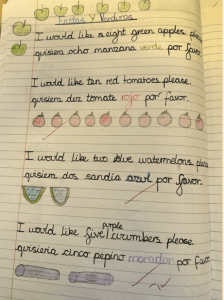 Frutas y Verduras
I would like a eight green apples please
quisiera ocho manzana verde por favor.
I would like ten red tomatoes please
quisiera diez tomate rojo por favor.
I would like two blue watermelons please
quisiera dos sandia azul por favor.
purple
I would like five cucumbers please
quisieria cinco pepino morador por favor